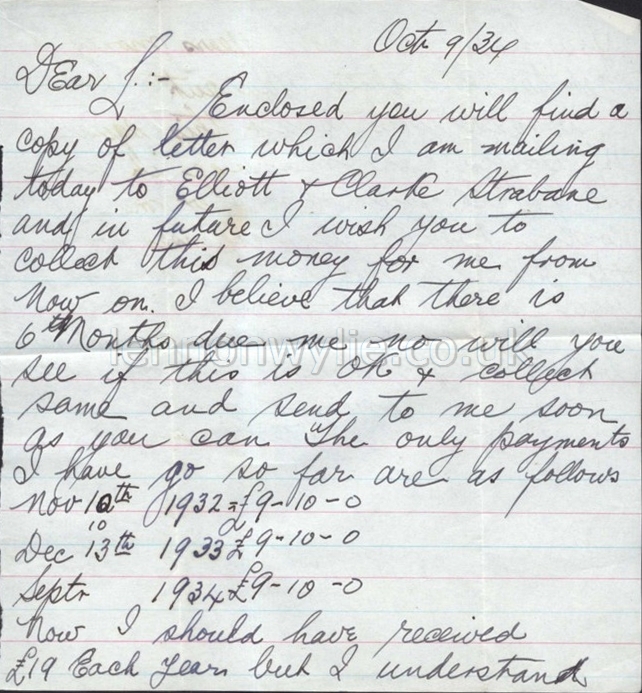 Oct 9/34
DEar J.:- Enclosed you will find a
copy of letter which I am mailing
today to Elliott & Clarke Strabane
and in future I wish you to
collect this money for me from
now on. I believe that there is
6th Months due me no will you
see if this is OK & collect
same and send to me soon
as you can The only payments
I have go so far are as follows
Nov 10th 1932 = £9-10-0
10
Dec 13th 1933 £9-10-0
Septr 1934 £9-10-0
Now I should have received
£19 Each year but I understand
lennonwylie.co.uk